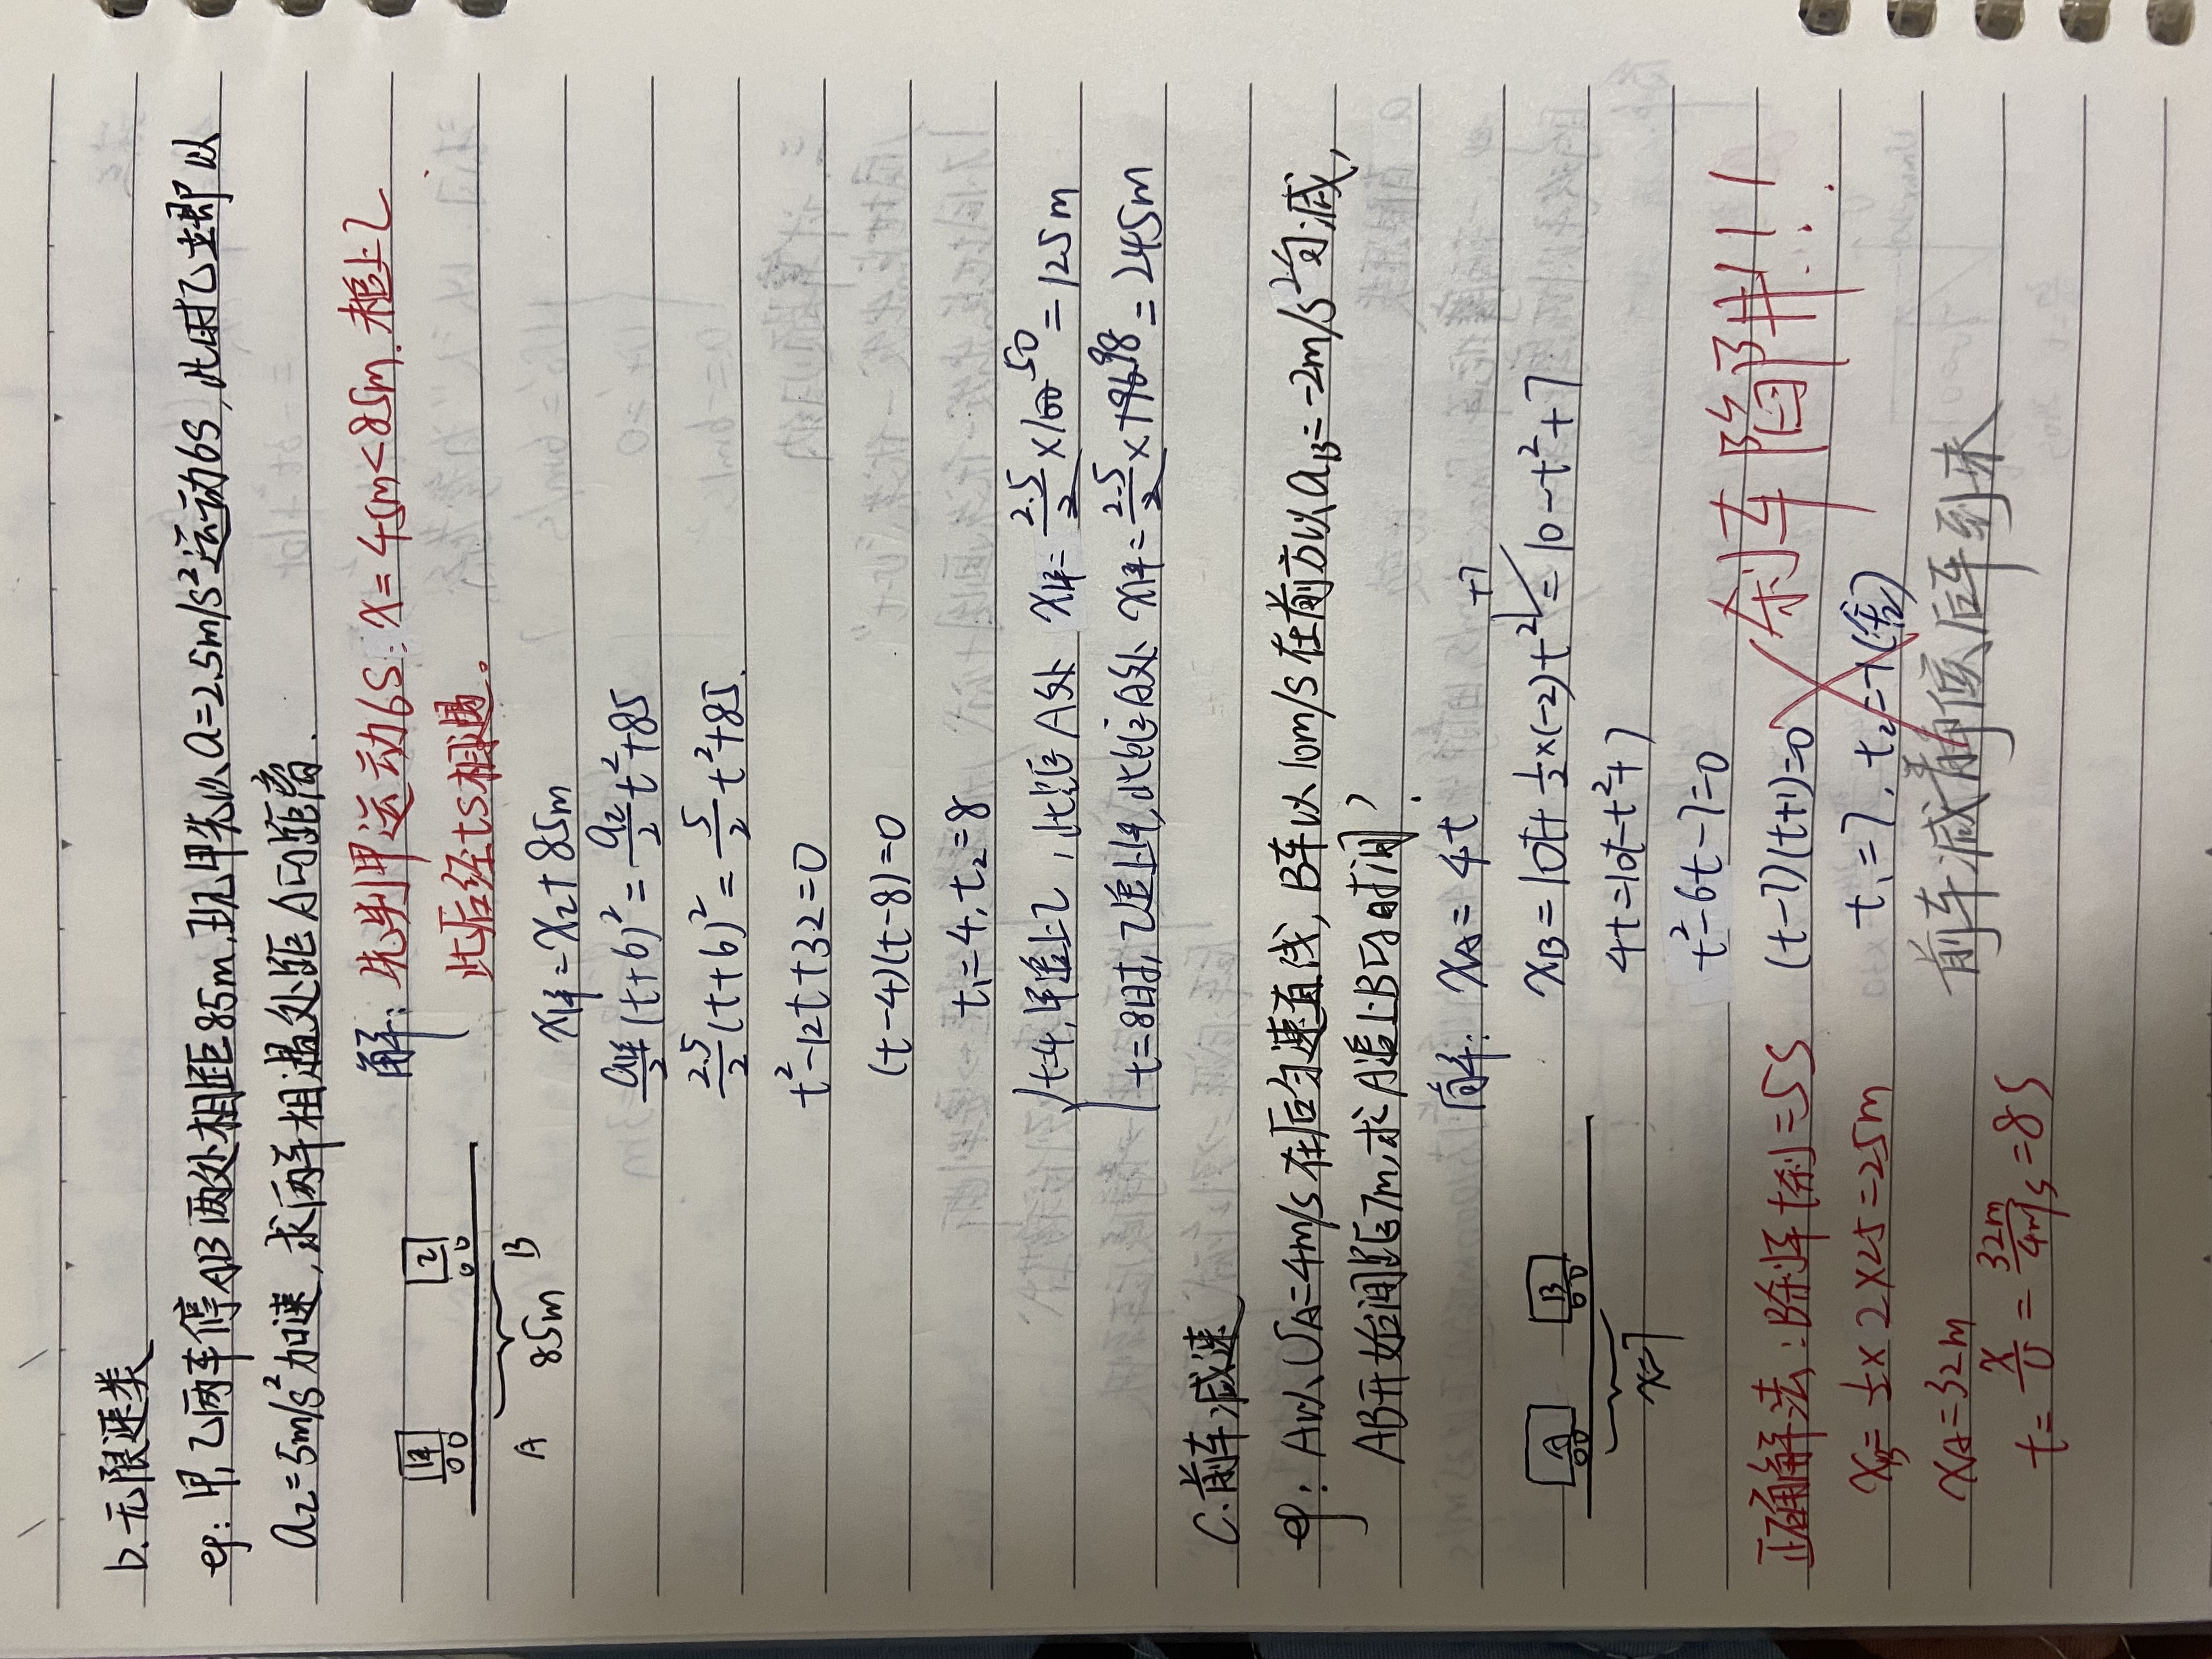 b.无限速类
eg:甲,乙两车停AB两处相距85m,现甲先以a=2.5m/s²运动6s,此时乙立即以
a乙=5m/s²加速,求两车相遇处距A的距离.
甲 乙
A 85m B
解: 先判甲运动6s: x=45m<85m.未追上乙
此后经ts相遇。
x甲=x乙+85m
a甲/2(t+6)²=a乙/2t²+85
2.5/2(t+6)²=5/2t²+85.
t²-12t+32=0
(t-4)(t-8)=0
t₁=4,t₂=8
t=4,甲追上乙,此距A处 x甲=2.5/2×100 50=125m
t=8时,乙追上甲,此距A处 x甲=2.5/2×196 98=245m
C.前车减速
eg:A以υA=4m/s在后匀速直线,B车以10m/s在前方以aB=-2m/s²匀减,
AB开始间距7m,求A追上B的时间?
A B
x=7
解: xA=4t
xB=10t+½×(-2)t²+7=10-t²+7
4t=10t-t²+7
t²-6t-7=0
(t-7)(t+1)=0
t₁=7,t₂=-1(舍)
刹车陷阱!!
前车减静候后车到来
正确解法:B除刹车t刹=5s
xB=½×2×25=25m
xA=32m
t=x/υ=32m/4m/s=8s